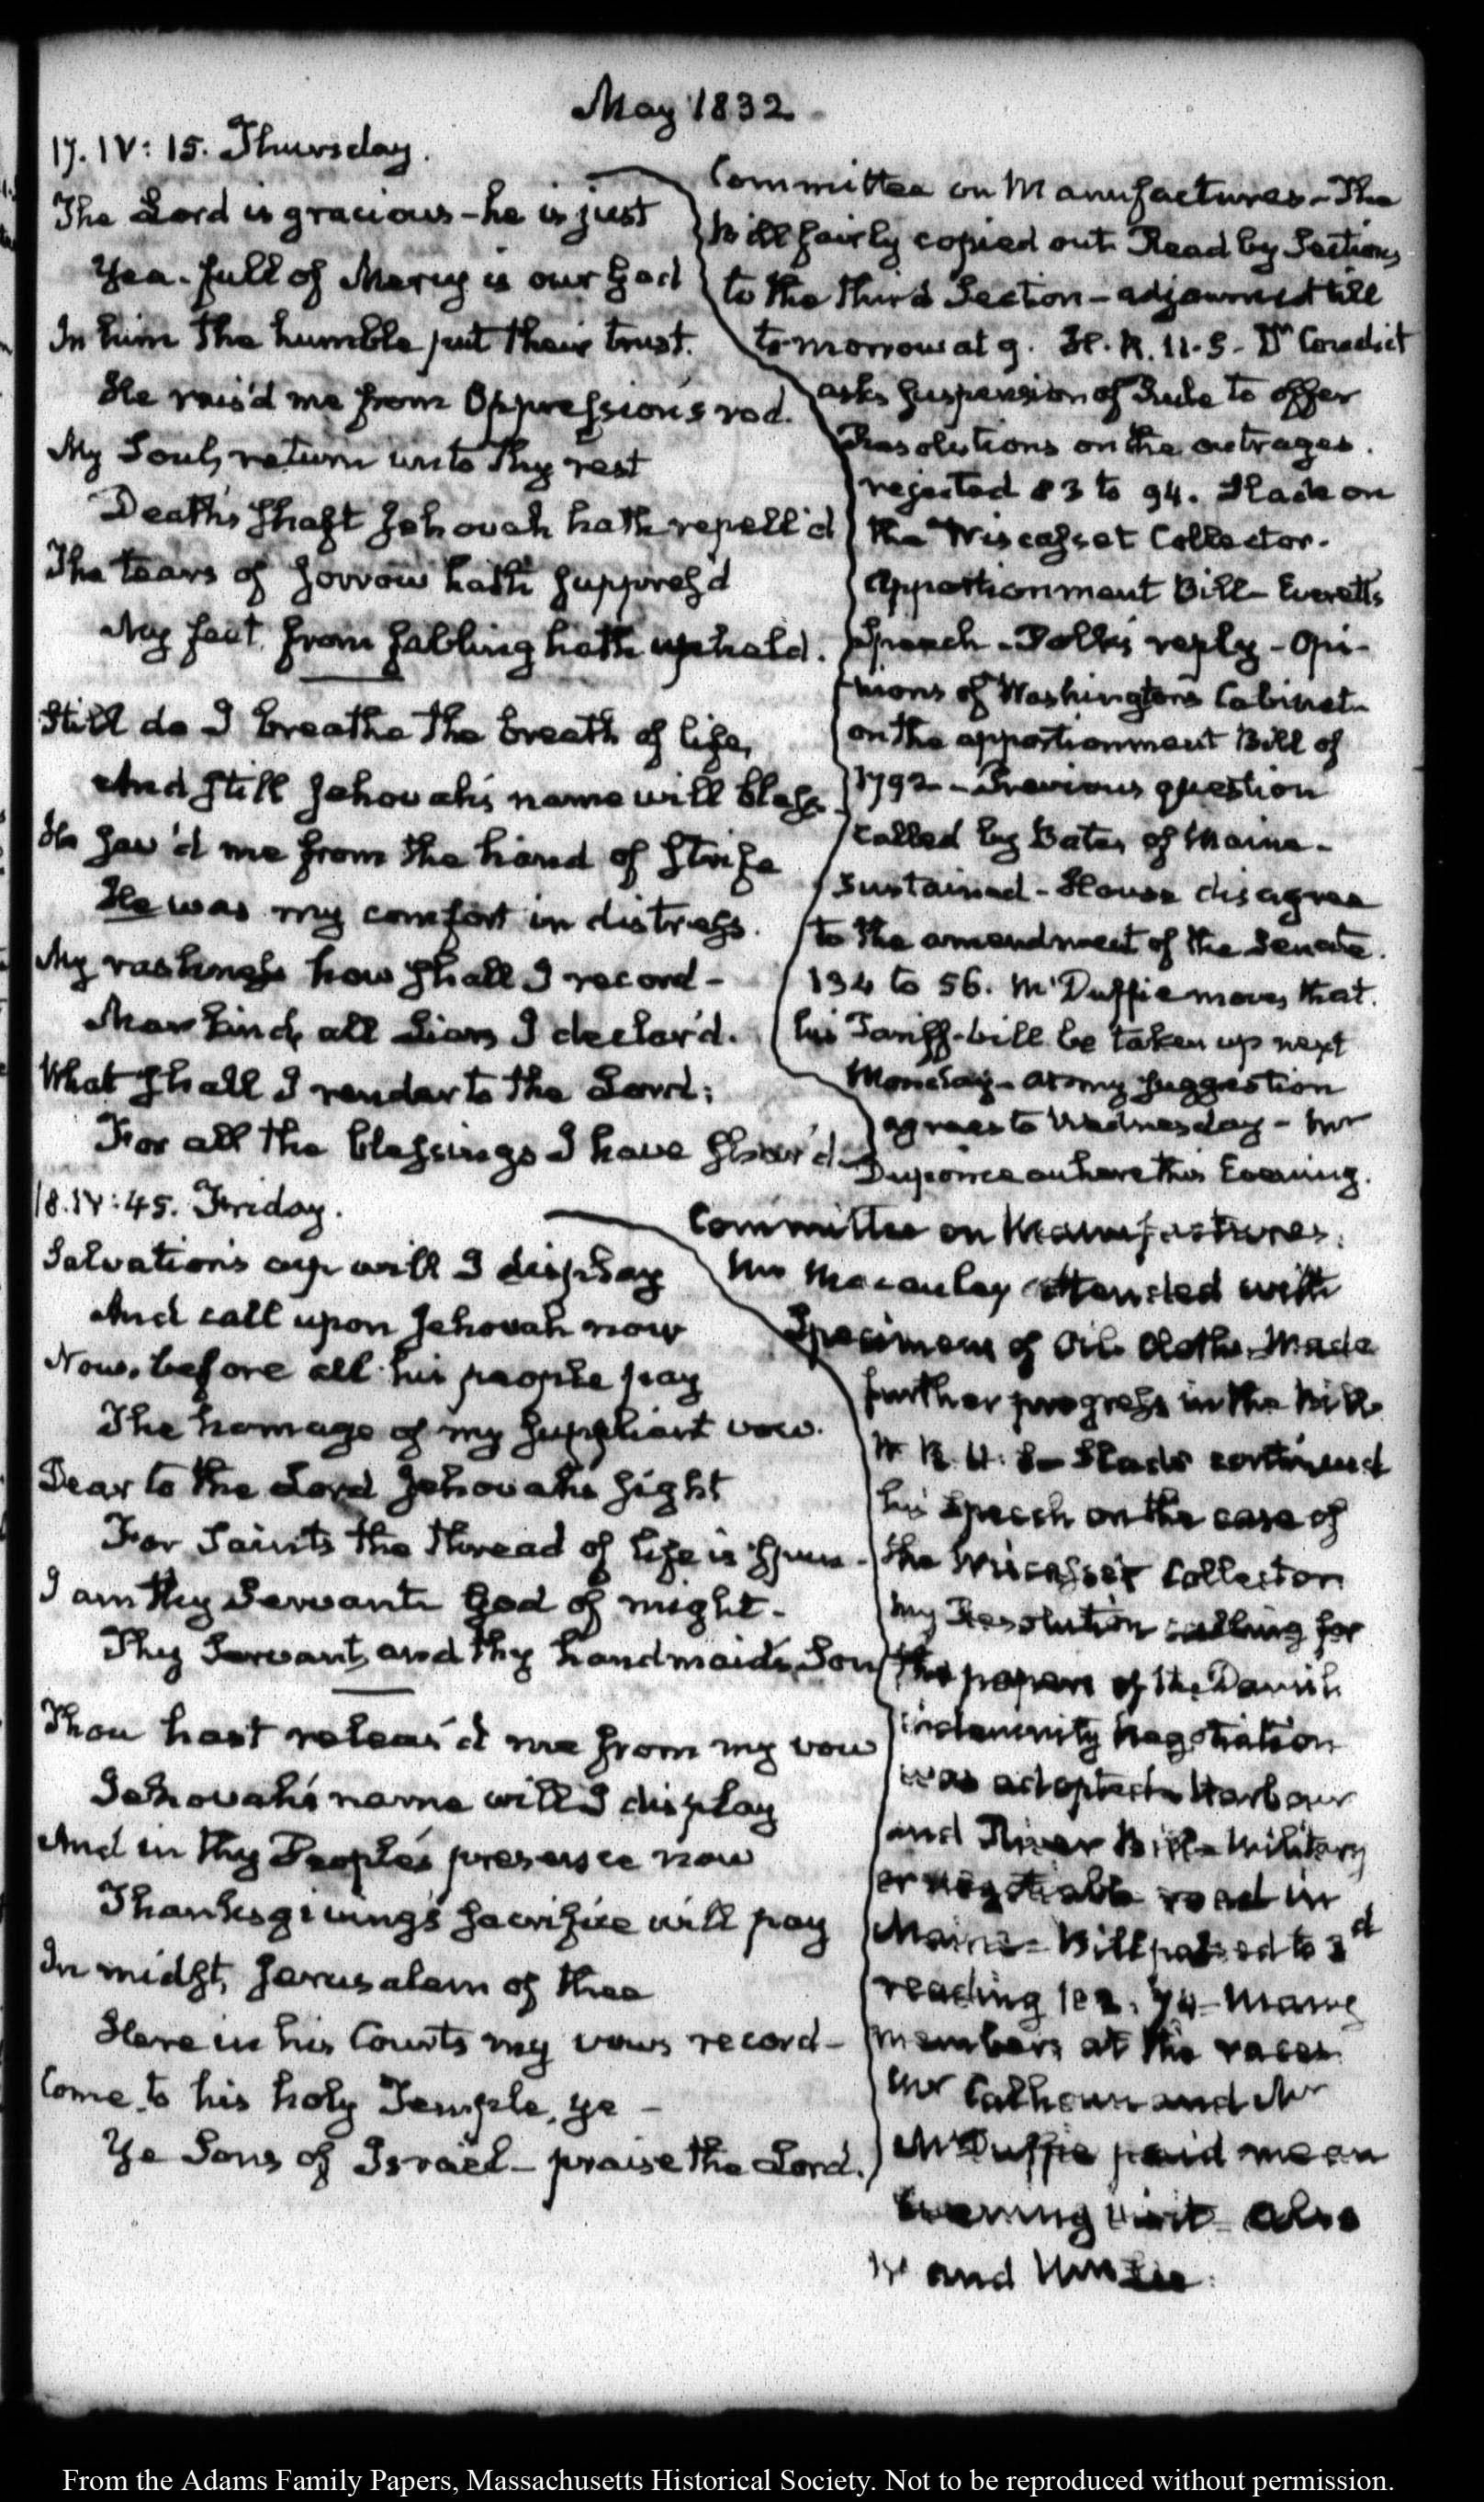 May 1832.
17. IV: 15. Thursday.
The Lord is gracious - he is just
Yea - full of Mercy is our God
In him the humble put their trust.
He rais'd me from Oppression's rod.
My Soul, return unto thy rest
Death's shaft Jehovah hath repell'd
The tears of sorrow hath suppress'd
My feet from falling hath upheld.
Still do I breathe the breath of life,
And still Jehovah's name will bless.
He sav'd me from the hand of strife
He was my comfort in distress.
My rashness how shall I record -
Mankind, all Liars I declar'd.
What shall I render to the Lord;
For all the blessings I have shar'd -
Committee on Manufactures - The
Bill fairly copied out. Read by Sections
to the third Section - adjourned till
to-morrow at 9. H. R. U. S - Dr. Condict
asks suspension of Rule to offer
Resolutions on the outrages.
rejected 83 to 94. Slade on
the Wiscasset Collector.
Apportionment Bill - Everett's
Speech - Polk's reply - Opi-
nions of Washington's Cabinet -
on the apportionment Bill of
1792 - Previous question
called by Bates of Maine -
sustained - House disagree
to the amendment of the Senate.
134 to 56. McDuffie moves that.
his Tariff-bill be taken up next
Monday - at my suggestion
agrees to Wednesday - Mr
Duponceau here this Evening.
18. IV: 45. Friday.
Salvation's cup will I display
And call upon Jehovah now
Now, before all his people pay
The homage of my suppliant vow.
Dear to the Lord Jehovah's sight
For Saints the thread of life is spun -
I am thy Servant God of might -
Thy Servant, and thy handmaid's Son
Thou hast releas'd me from my vow
Jehovah's name will I display
And in thy People's presence now
Thanksgiving's sacrifice will pay
In midst, Jerusalem of thee
Here in his Courts my vows record -
Come to his holy Temple, ye -
Ye Sons of Israel - praise the Lord.
Committee on Manufactures.
Mr Macauley attended with
Specimens of Oil Cloths - Made
further progress in the Bill
H. R. U. S - Slade continued
his Speech on the case of
the Wiscasset Collector
my Resolution calling for
the papers of the Danish
indemnity Negotiation
was adopted - Harbour
and River Bill - Military
or road in
Maine - Bill passed to 3d
reading 102. 74 - Many
members at the races.
Mr Calhoun and Mr
McDuffie paid me an
Evening visit - also
and
From the Adams Family Papers, Massachusetts Historical Society. Not to be reproduced without permission.